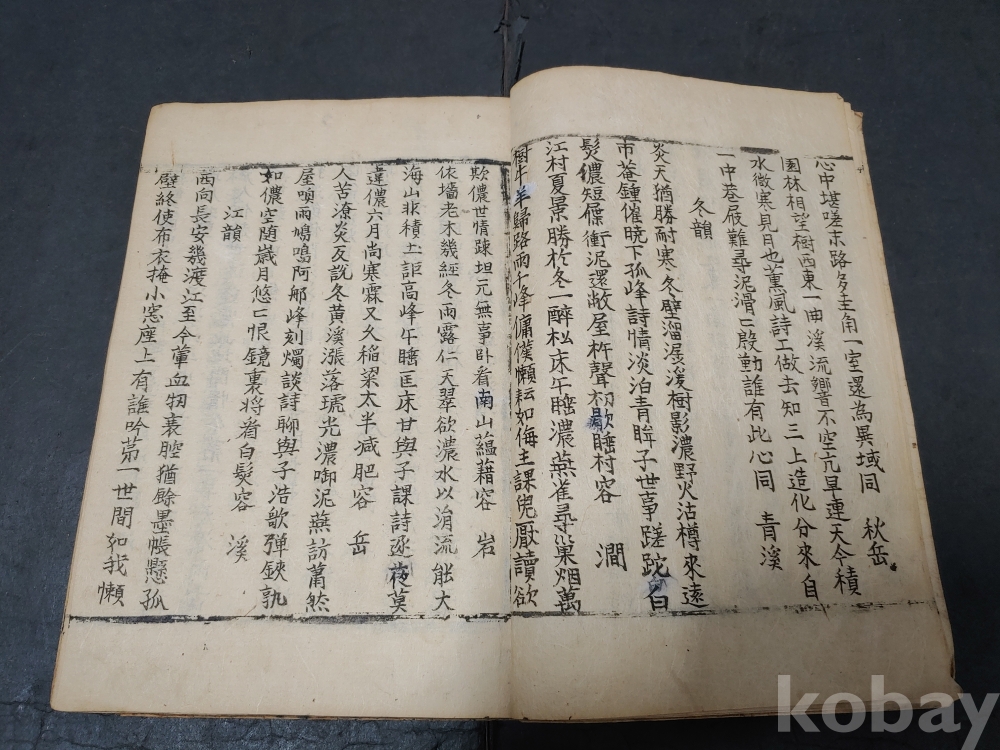 心中堪嗟末路多圭角一室還為異域同 秋岳
園林相望樹西東一曲溪流響不空亢旱連天今積
水微寒見日也薰風詩工做去知三上造化分來自
一中巷屐難尋泥滑〻殷勤誰有此心同 青溪
冬韻
炎天猶勝耐寒冬壁溜潺湲樹影濃野火沽樽來遠
市菴鍾催曉下孤峰詩情淡泊青眸子世事蹉跎白
髮儂短屧衝泥還敝屋杵聲初歇睡村容 澗
江村夏景勝於冬一醉松床午睡濃燕雀尋巢烟萬
樹牛羊歸路雨千峰傭僕懶耘如侮主課兒厭讀欲
欺儂世情踈坦元無事卧看南山蘊藉容 岩
依墻老木幾經冬雨露仁天翠欲濃水以涓流能大
海山非積土詎高峰午睡匡床甘與子課詩逐夜莫
違儂六月尚寒霖又久稻粱太半减肥容 岳
人苦潦炎反說冬黃溪漲落琥光濃啣泥燕訪蕭然
屋喚雨鳩鳴阿那峰刻燭談詩聊與子浩歌彈鋏孰
如儂空随歲月悠〻恨鏡裏将看白髮容 溪
江韻
西向長安幾渡江至今葷血物衰腔猶餘墨帳懸孤
壁終使布衣掩小窓座上有誰吟第一世間如我懶